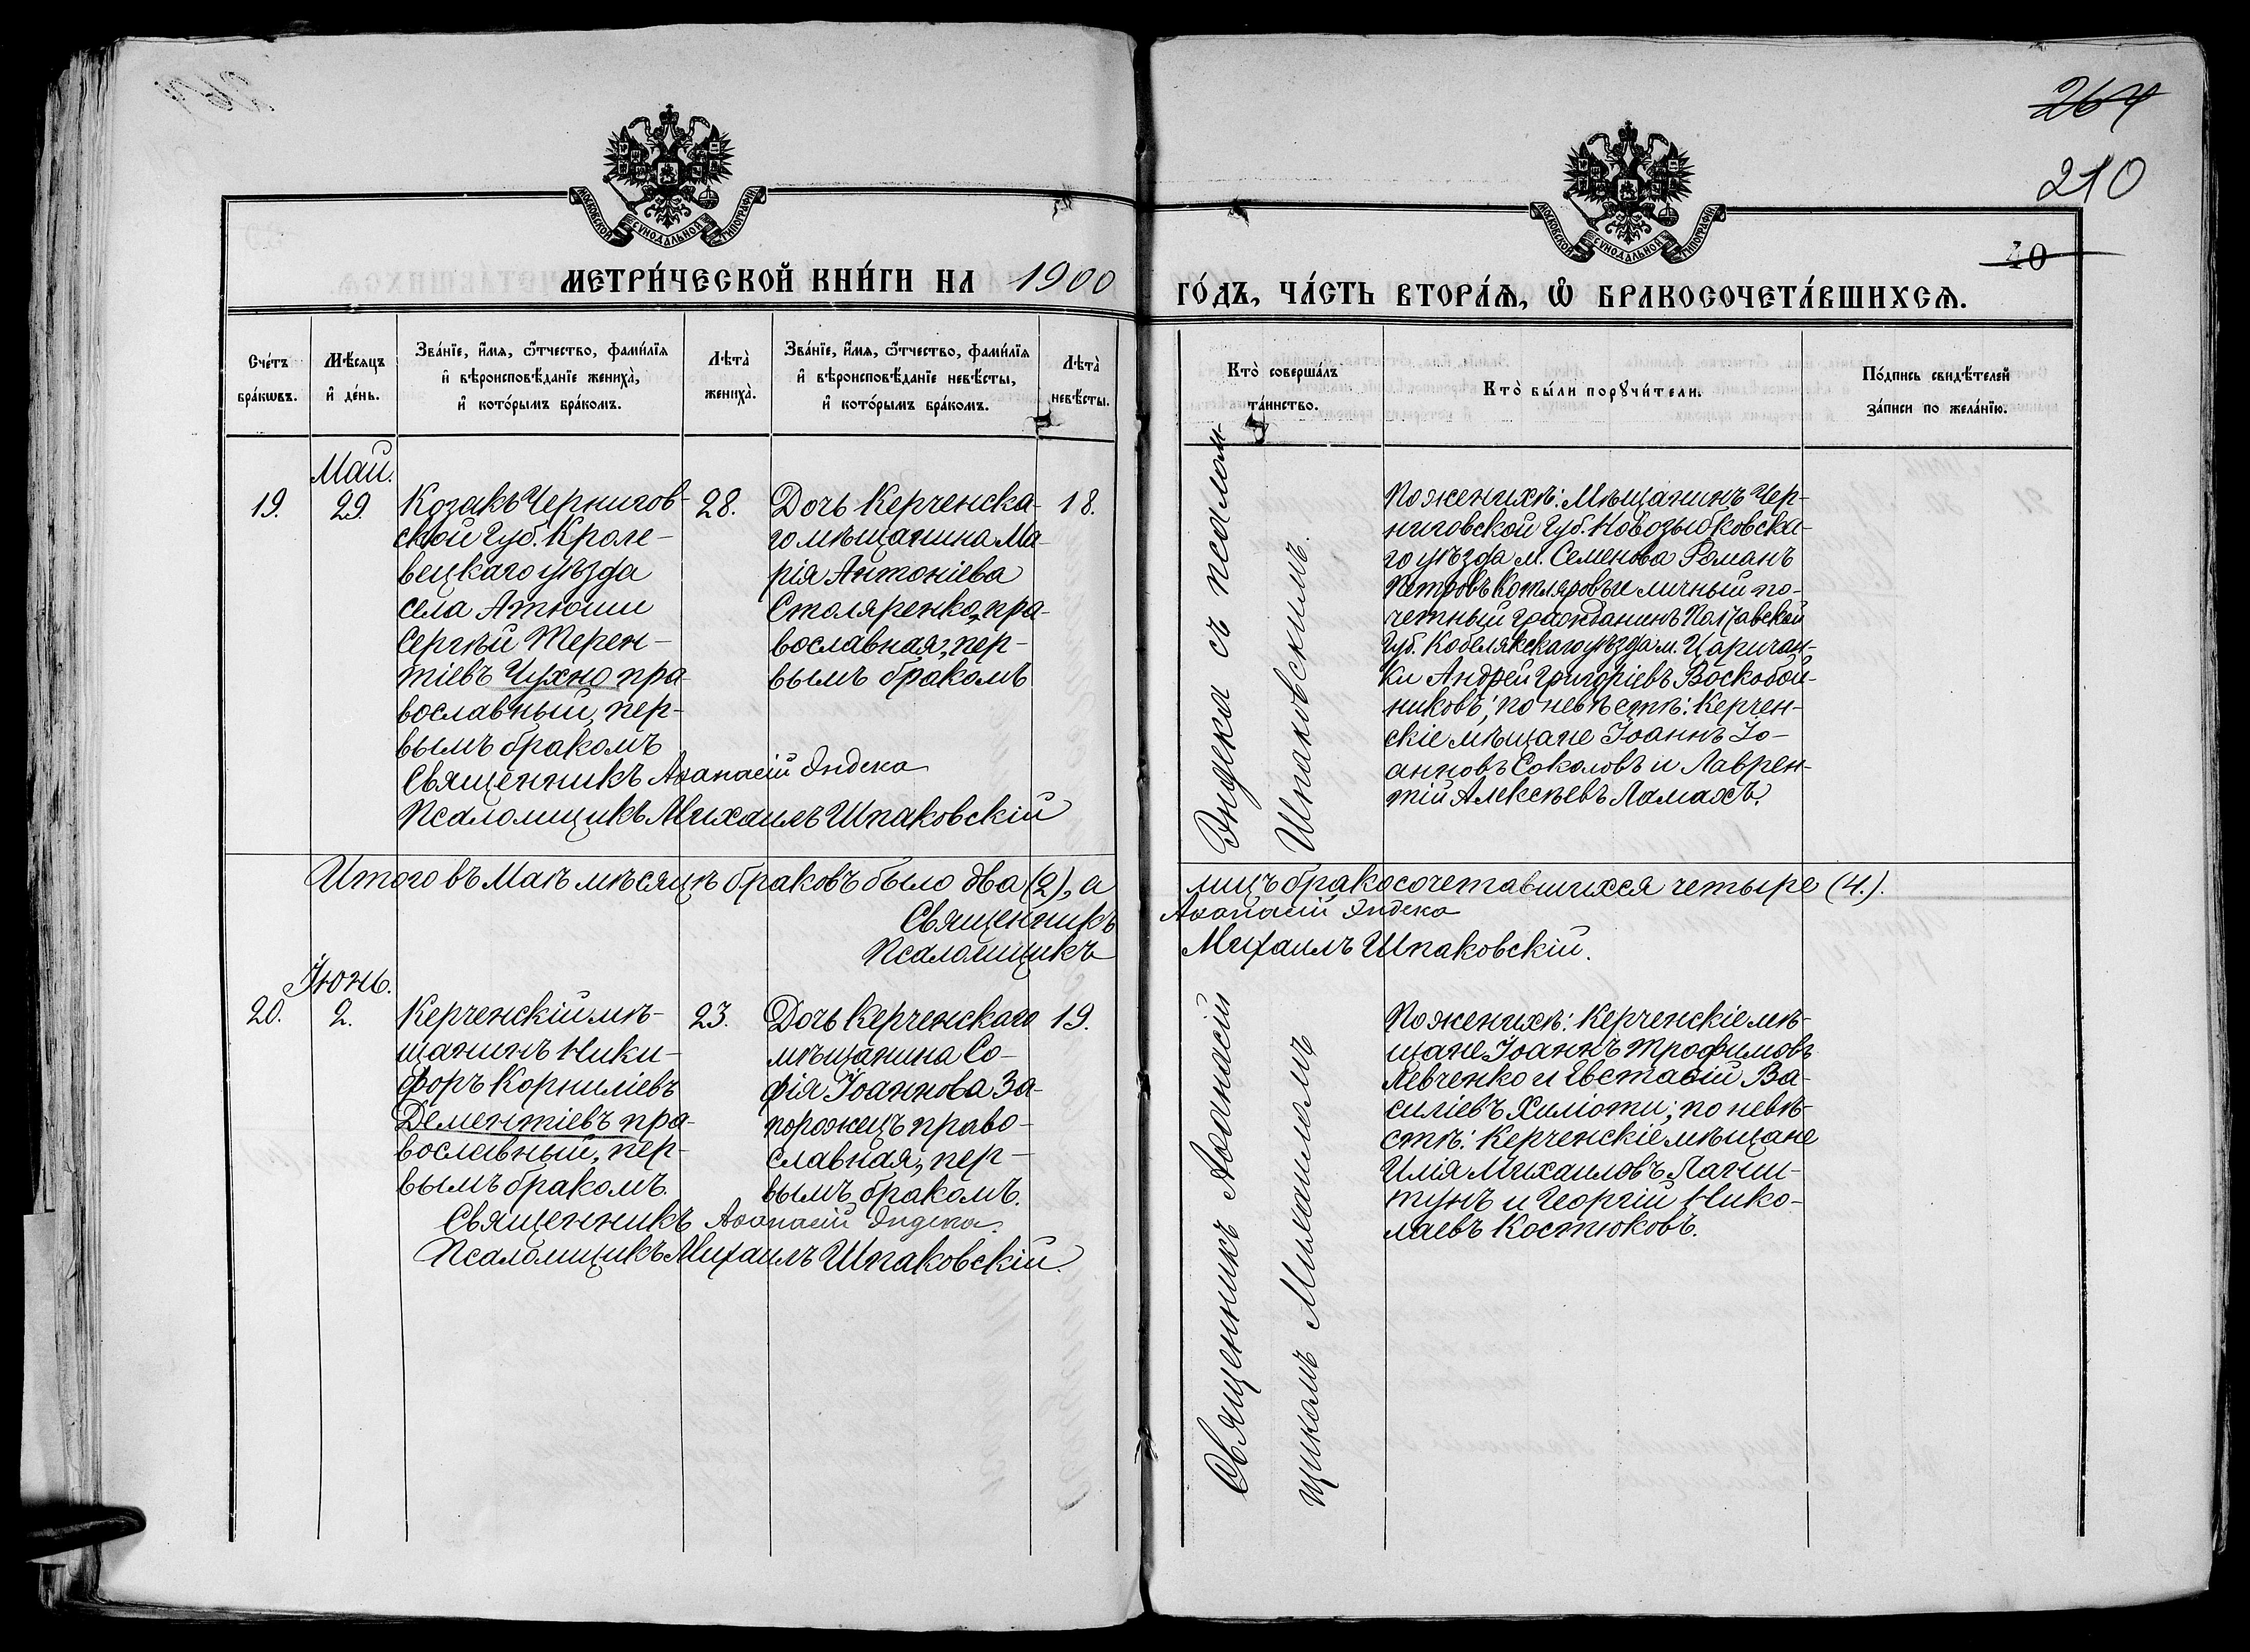 264
210
40
МОСКОВСКОЙ СѴНОДАЛЬНОЙ ТИПОГРАФІИ
МОСКОВСКОЙ СѴНОДАЛЬНОЙ ТИПОГРАФІИ
МЕТРИ́ЧЕСКОЙ КНИ́ГИ НА 1900
ГО́ДЪ, ЧА́СТЬ ВТОРА́Ѧ, Ѽ БРАКОСОЧЕТА́ВШИХСѦ.
Сче́тъ
бра́кѡвъ.
Мѣ́сяцъ
и҆ де́нь.
Зва́нїе, и҆́мѧ, ѻ҆́тчество, фами́лїѧ
и҆ вѣроисповѣ́данїе жениха̀,
и҆ кото́рымъ бра́комъ.
Лѣта̀
жениха̀.
Зва́нїе, и҆́мѧ, ѻ҆́тчество, фами́лїѧ
и҆ вѣроисповѣ́данїе невѣ́сты,
и҆ кото́рымъ бра́комъ.
Лѣта̀
невѣ́сты.
Кто̀ соверша́лъ
та́инство.
Кто̀ бы́ли порꙋчи́тели.
По́дпись свидѣ́телей
за́писи по жела́нїю.
Май.
19.
29.
Козакъ Чернигов-
ской Губ. Кроле-
вецкаго уѣзда
села Атюши
Сергѣй Терен-
тіевъ Чухно пра-
вославный, пер-
вымъ бракомъ
28.
Дочь Керченска-
го мѣщанина Ма-
рія Антоніева
Столяренко, пра-
вославная, пер-
вымъ бракомъ
18.
Священникъ Аѳанасій Эндека
Псаломщикъ Михаилъ Шпаковскій
Эндека съ псалом-
Шпаковскимъ.
По женихѣ: Мѣщанинъ Чер-
ниговской Губ. Новозыбковска-
го уѣзда м. Семенова Романъ
Петровъ Котляровъ и личный по-
четный гражданинъ Полтавской
Губ. Кобелякскаго уѣзда м. Царичан-
ки Андрей Григоріевъ Воскобой-
никовъ; по невѣстѣ: Керчен-
скіе мѣщане Іоаннъ Іо-
анновъ Соколовъ и Лаврен-
тій Алексѣевъ Ламахъ.
Итого въ Маѣ мѣсяцѣ браковъ было два (2), а
лицъ бракосочетавшихся четыре (4.).
Священникъ Аѳанасій Эндека
Псаломщикъ Михаилъ Шпаковскій.
Іюнь.
20.
2.
Керченскій мѣ-
щанинъ Ники-
форъ Корниліевъ
Дементіевъ пра-
вославный, пер-
вымъ бракомъ.
23.
Дочь Керченскаго
мѣщанина Со-
фія Іоаннова За-
порожецъ право-
славная, пер-
вымъ бракомъ.
19.
Священникъ Аѳанасій Эндека.
Псаломщикъ Михаилъ Шпаковскій.
Священникъ Аѳанасій
щикомъ Михаиломъ
По женихѣ: Керченскіе мѣ-
щане Іоаннъ Трофимовъ
Левченко и Евстаѳій Ва-
силіевъ Хиліоти; по невѣ-
стѣ: Керченскіе мѣщане
Илія Михаиловъ Лагни-
тунъ и Георгій Нико-
лаевъ Костюковъ.